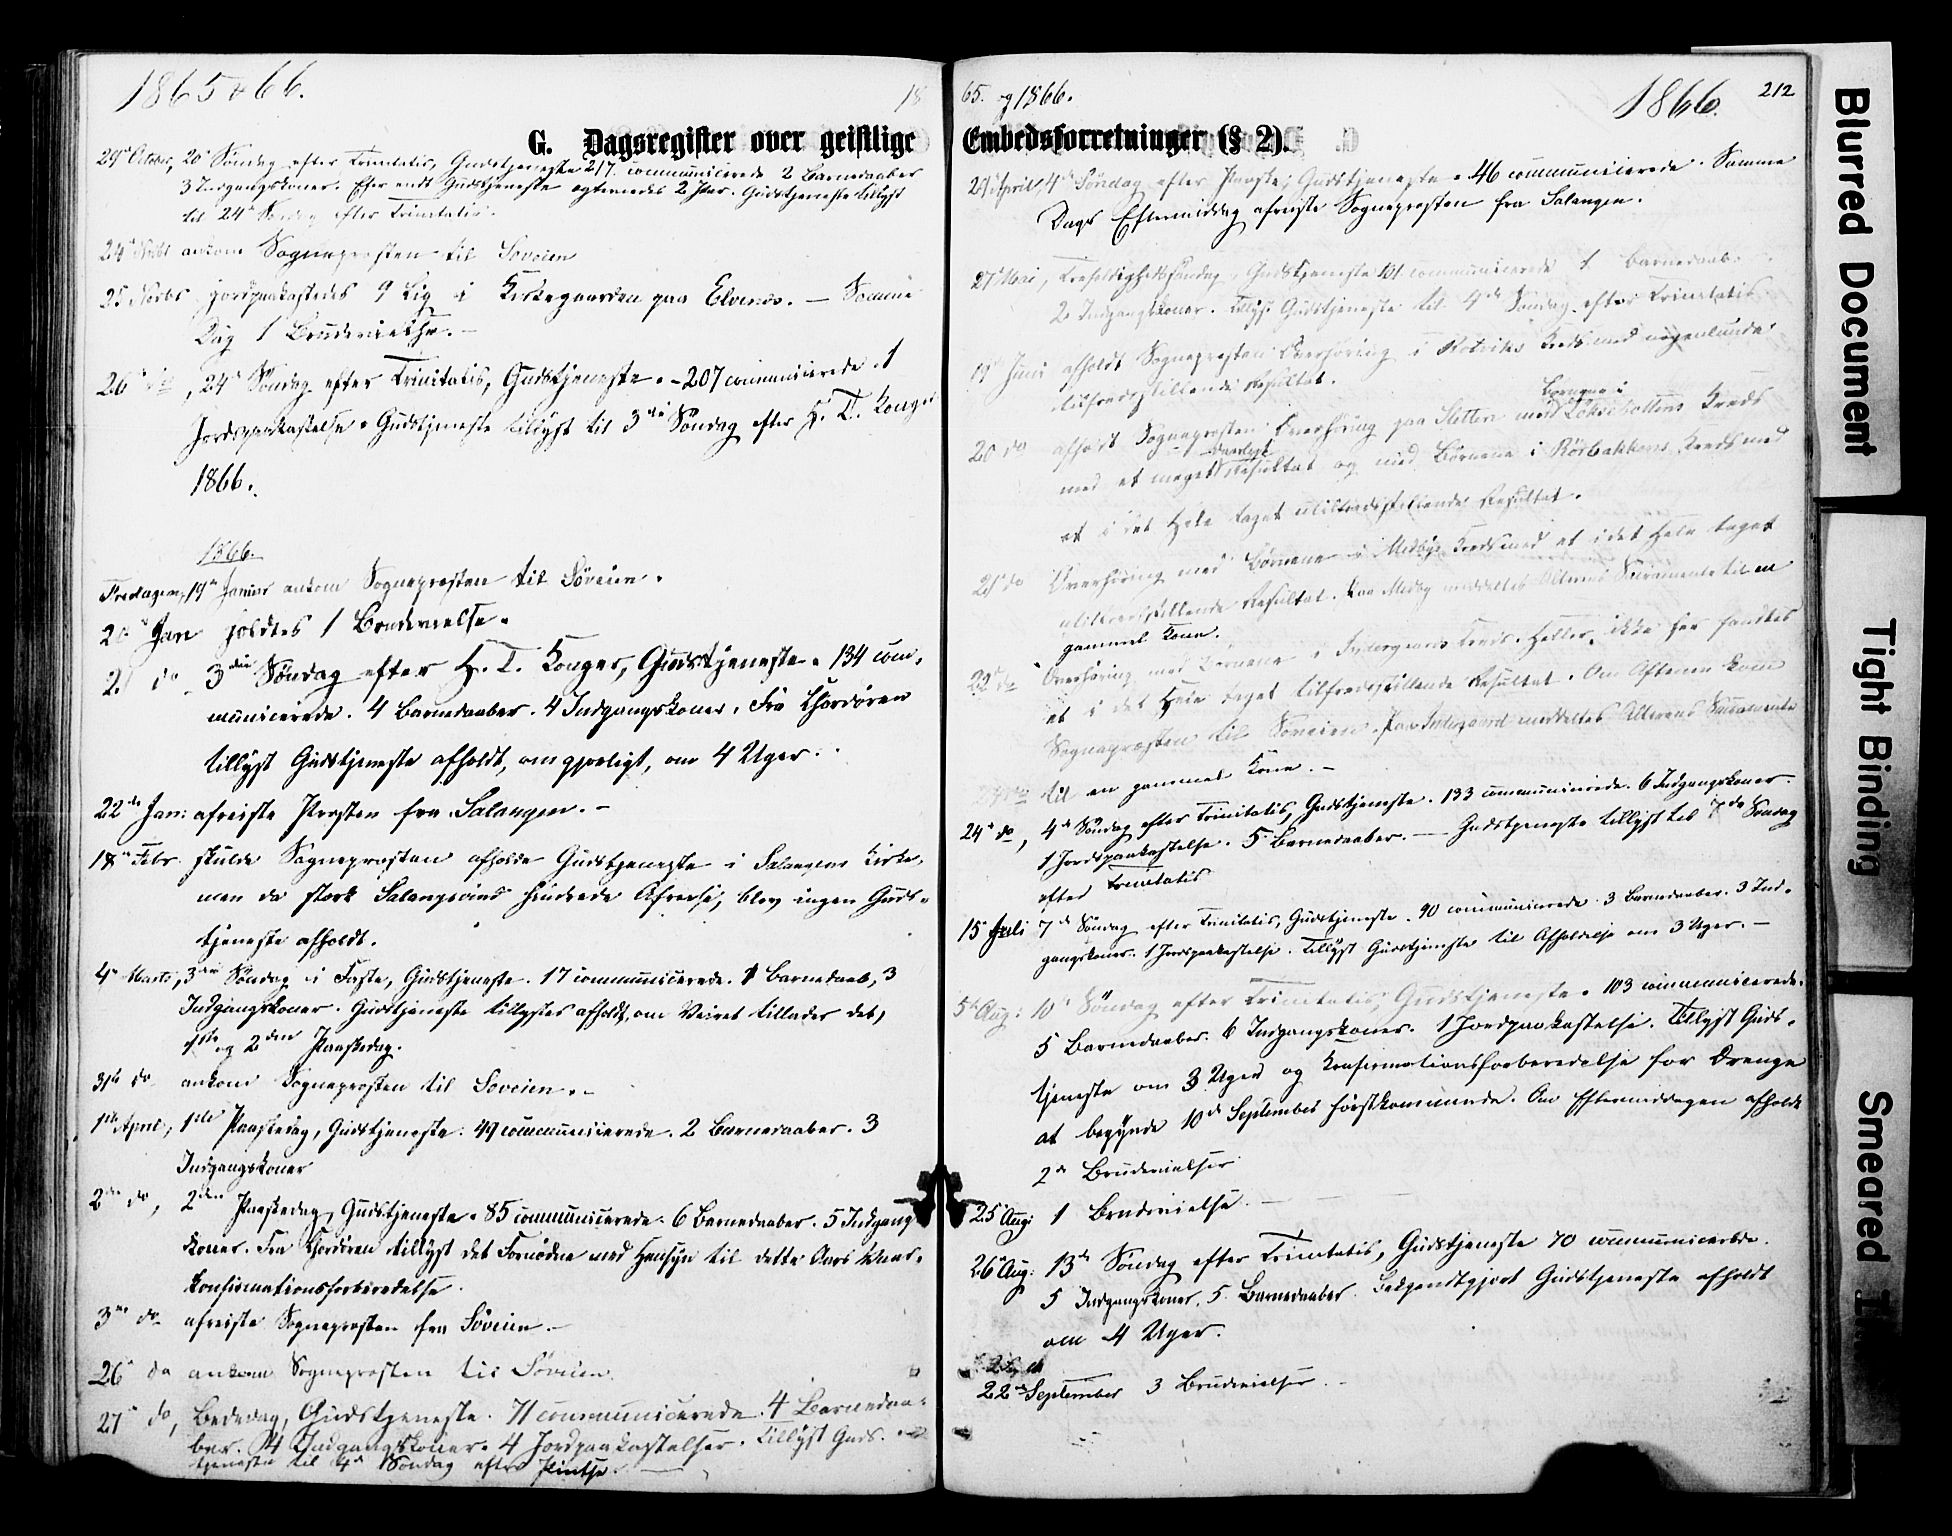 1865 & 66.
18
G. Dagsregister over geistlige
29de October, 20de Søndag efter Trinitatis, Gudstjeneste 217 communicerede 2 Barnedaaber
3 Indgangskoner. Efter endt Gudstjeneste egteviedes 2 Par. Gudstjeneste tillyst
til 24de Søndag efter Trinitatis.
24de Novbr ankom Sognepresten til Søveien
25 Novbr jordpaakastedes 9 Lig i Kirkegaarden paa Elvenes. — Samme
Dag 1 Brudevielse. —
26de do, 24de Søndag efter Trinitatis, Gudstjeneste. - 207 communicerede. 1
Jordpaakastelse. Gudstjeneste tillyst til 3die Søndag efter H. T. Konger
1866.
1866.
Fredagen, 19de Januar ankom Sognepresten til Søveien.
20de Jan holdtes 1 Brudevielse.
21 do 3die Søndag efter H. T. Konger, Gudstjeneste. 134 com-
municerede. 4 Barnedaaber. 4 Indgangskoner. Fra Chordøren
tillyst Gudstjeneste afholdt, om gjørligt, om 4 Uger.
22de Jan: afreiste Presten fra Salangen. —
18de Febr skulde Sognepresten afholde Gudstjeneste i Salangens Kirke,
men da sterk Salangsvind hindrede Afreise, blev ingen Guds-
tjeneste afholdt.
4de Marts, 3die Søndag i Faste, Gudstjeneste. 17 communicerede. 1 Barnedaab, 3
Indgangskoner. Gudstjeneste tillystes afholdt, om Veiret tillader det,
1ste og 2den Paaskedag.
31te do ankom Sognepresten til Søveien. —
1ste April, 1ste Paaskedag, Gudstjeneste: 49 communicerede. 2 Barnedaaber. 3
Indgangskoner
2den do, 2den Paaskedag, Gudstjeneste. 85 communicerede. 6 Barnedaaber. 5 Indgangs
koner. Fra Chordøren tillyst det Fornødne med Hensyn til dette Aars
Konfirmationsforberedelse.
3die do afreiste Sognepresten fra Søveien. —
26de do ankom Sognepresten til Søveien.
27de do, Bededag, Gudstjeneste. 71 communicerede. 4 Barnedaa-
ber. 4 Indgangskoner. 4 Jordpaakastelser. Tillyst Guds-
tjeneste til 4de Søndag efter Pintse. —
65. og 1866.
1866.
212
Embedsforretninger (§ 2).
29de April, 4de Søndag efter Paaske; Gudstjeneste. 46 communicerede. Samme
Dags Eftermiddag afreiste Sognepresten fra Salangen.
27de Mai, Trefoldighedssøndag, Gudstjeneste 101 communicerede 1 Barnedaab.
2 Indgangskoner. Tillyst Gudstjeneste til 4de Søndag efter Trinitatis
19de Juni afholdt Sognepresten Overhøring i Rotviks Kreds med nogenlunde
tilfredsstillende Resultat.
Børnene i
20 do afholdt Sognepresten Overhøring paa Sletten med Laxholtens Kreds
daarligt
med et meget Resultat og med Børnene i Rørbakkens Kreds med
et i det Hele taget utilfredsstillende Resultat.
21de do Overhøring med Børnene i Medbys Kreds med et i det Hele taget
utilfredsstillende Resultat. Paa Medby meddeltes Alterens Sacramente til en
gammel Kone.
22de do Overhøring med Børnene i Kreds. Heller ikke her fandtes
et i det Hele taget tilfredsstillende Resultat. Om Aftenen kom
Sognepresten til Søveien. Paa meddeltes Alterens Sacramente
til en gammel Kone. —
24de do, 4de Søndag efter Trinitatis, Gudstjeneste. 133 communicerede. 6 Indgangskoner.
1 Jordpaakastelse. 5 Barnedaaber. — Gudstjeneste tillyst til 7de Søndag
efter Trinitatis
15de Juli 7de Søndag efter Trinitatis, Gudstjeneste. 90 communicerede. 3 Barnedaaber. 3 Ind-
gangskoner. 1 Jordpaakastelse. Tillyst Gudstjeneste til Afholdelse om 3 Uger. —
5te Aug: 10de Søndag efter Trinitatis, Gudstjeneste. 103 communicerede.
5 Barnedaaber. 6 Indgangskoner. 1 Jordpaakastelse. Tillyst Guds-
tjeneste om 3 Uger og Konfirmationsforberedelse for Drenge
at begynde 10de September førstkommende. Om Eftermiddagen afholdt
2de Brudevielser
25de Aug: 1 Brudevielse. —
26de Aug: 13de Søndag efter Trinitatis, Gudstjeneste 70 communicerede.
5 Indgangskoner. 5 Barnedaaber. Bekjendtgjort Gudstjeneste afholdt
om 4 Uger.
22de September 3 Brudevielser. —
Blurred Document
Tight Binding
Smeared